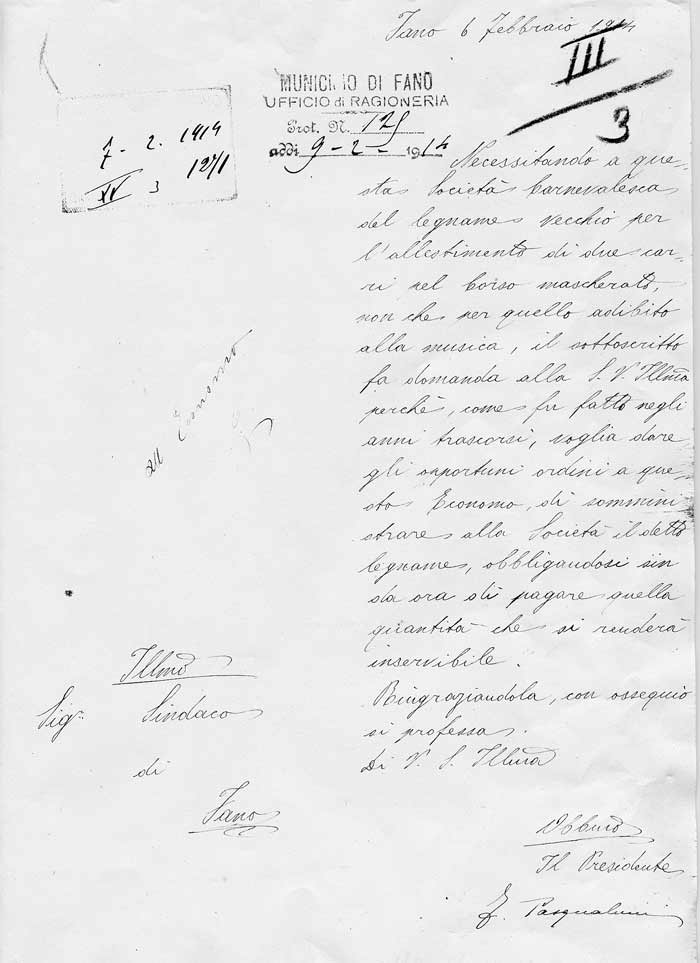 Fano 6 Febbraio 1914
III
3
7 - 2. 1914
1271
XV 3
MUNICIPIO DI FANO
UFFICIO di RAGIONERIA
Prot. N. 125
addì 9-2- 1914
Necessitando a que-
sta Società Carnevalesca
del legname vecchio per
l'allestimento di due car-
ri pel Corso mascherato,
non che per quello adibito
alla musica, il sottoscritto
fa domanda alla S. V. Illma
perchè, come fu fatto negli
anni trascorsi, voglia dare
gli opportuni ordini a que-
sto Economo, di sommini
strare alla Società il detto
legname, obbligandosi sin
da ora di pagare quella
quantità che si renderà
inservibile.
Ringraziandola, con ossequio
si professa.
Di V. S. Illma
all' Economo
Illmo
Sigr Sindaco
di
Fano
Obbmo
Il Presidente
Pasqualini